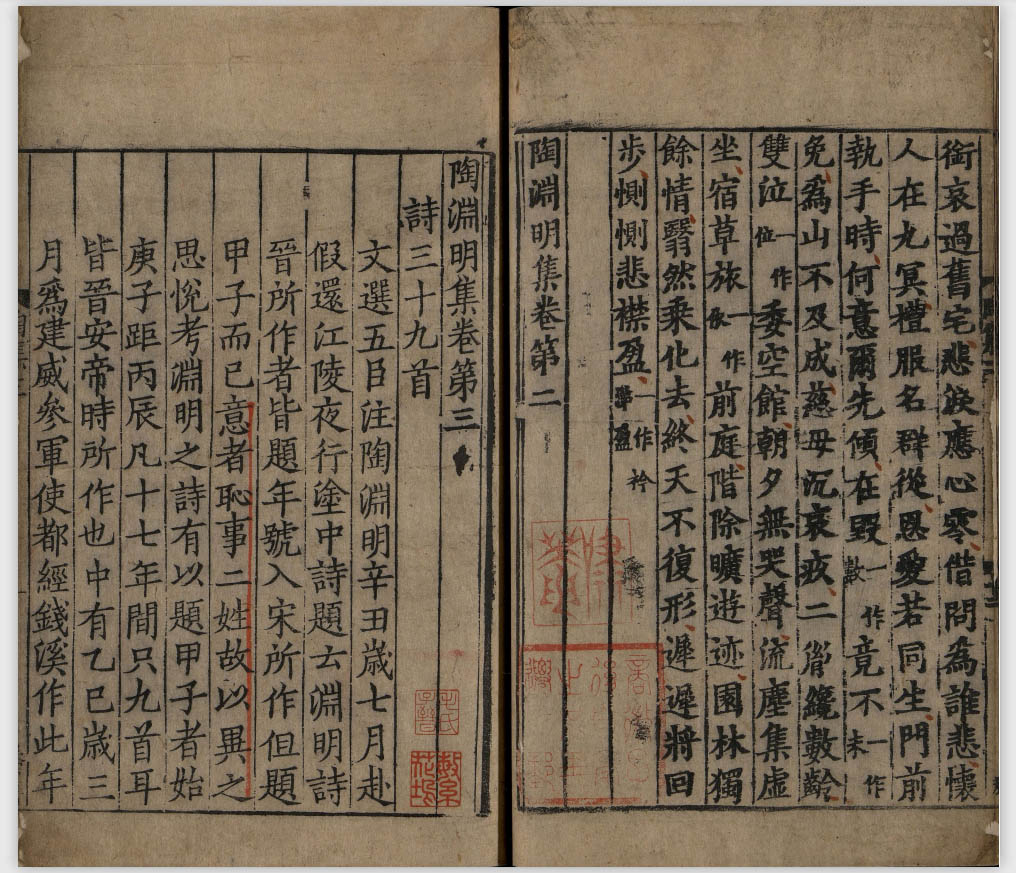 銜哀過舊宅悲淚應心零借問為誰悲懷
人在九冥禮服名群從恩愛若同生門前
執手時何意爾先傾在毀一作數竟不一作未
免為山不及成慈母沉哀疚二𦙍纔數齡
雙泣一作位委空館朝夕無哭聲流塵集虛
坐宿草旅一作依前庭階除曠遊迹園林獨
餘情翳然乘化去終天不復形遲遲將回
步惻惻悲襟盈一作衿涕盈
陶淵明集卷第二
陶淵明集卷第三
詩三十九首
文選五臣注陶淵明辛丑歲七月赴
假還江陵夜行塗中詩題云淵明詩
晉所作者皆題年號入宋所作但題
甲子而已意者恥事二姓故以異之
思悅考淵明之詩有以題甲子者始
庚子距丙辰凡十七年間只九首耳
皆晉安帝時所作也中有乙巳歲三
月為建威參軍使都經錢溪作此年